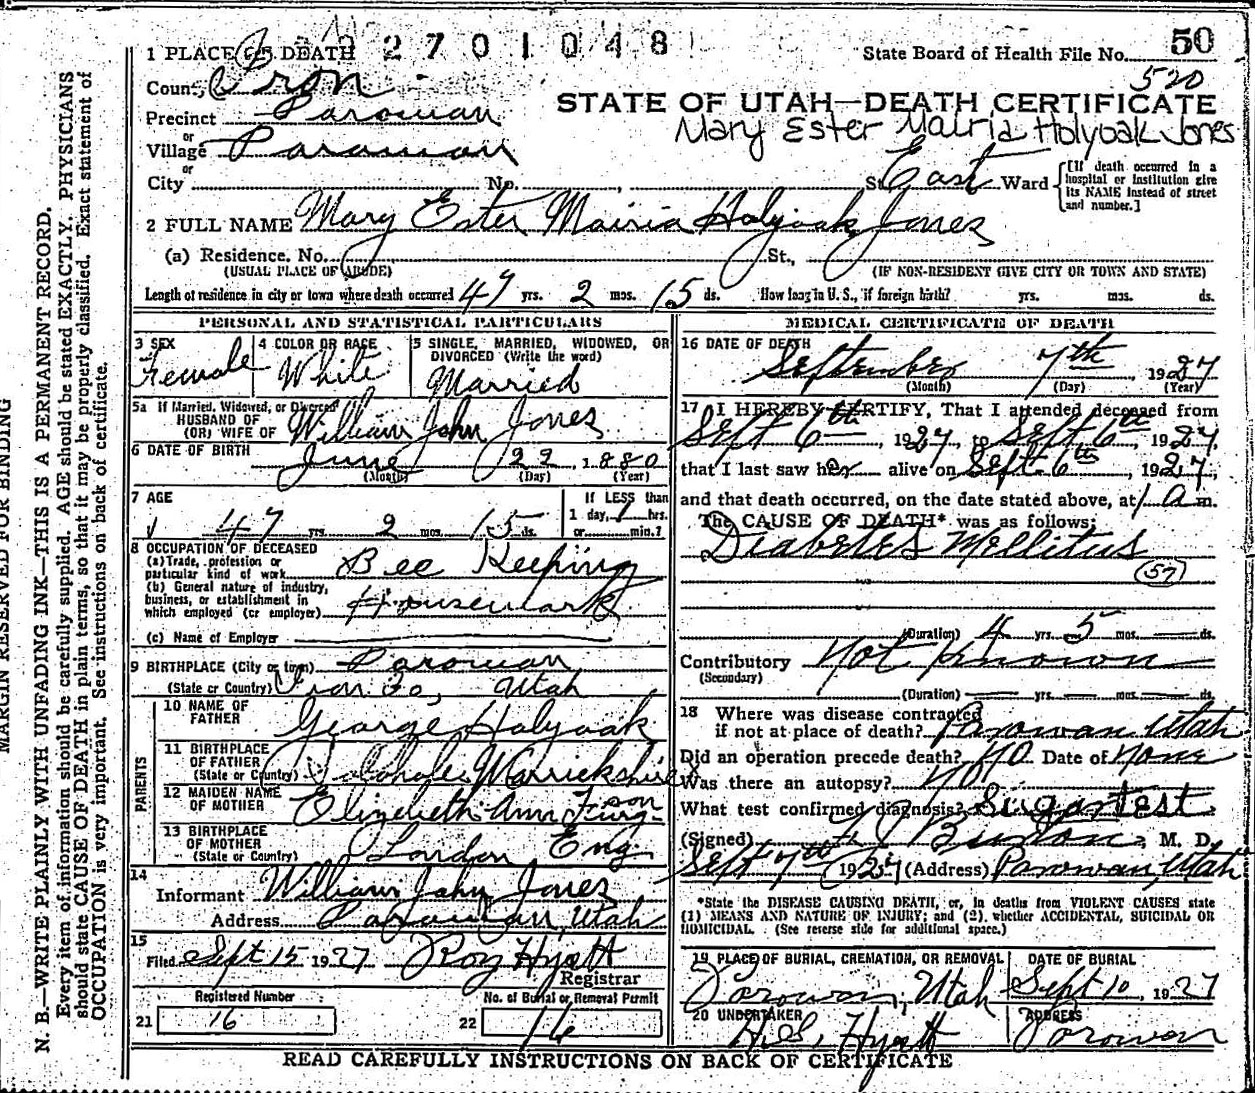 1 PLACE OF DEATH 2701048
State Board of Health File No. 50
520
County Iron
STATE OF UTAH—DEATH CERTIFICATE
Precinct Parowan
Mary Ester Mairia Holyoak Jones
or
Village Parowan
or
City No. , St. East Ward
[If death occurred in a hospital or institution give its NAME instead of street and number.]
2 FULL NAME Mary Ester Mairia Holyoak Jones
(a) Residence. No. St.,
(USUAL PLACE OF ABODE) (IF NON-RESIDENT GIVE CITY OR TOWN AND STATE)
Length of residence in city or town where death occurred 47 yrs. 2 mos. 15 ds. How long in U. S., if foreign birth? yrs. mos. ds.
PERSONAL AND STATISTICAL PARTICULARS
3 SEX Female
4 COLOR OR RACE White
5 SINGLE, MARRIED, WIDOWED, OR DIVORCED (Write the word)
Married
5a If Married, Widowed, or Divorced
HUSBAND OF
(OR) WIFE OF William John Jones
6 DATE OF BIRTH June 22, 1880
(Month) (Day) (Year)
7 AGE
47 yrs. 2 mos. 15 ds.
If LESS than
1 day, hrs.
or min.?
8 OCCUPATION OF DECEASED
(a) Trade, profession or
particular kind of work Bee Keeping
(b) General nature of industry,
business, or establishment in
which employed (or employer) Housework
(c) Name of Employer
9 BIRTHPLACE (City or town) Parowan
(State or Country) Iron Co., Utah
PARENTS
10 NAME OF
FATHER George Holyoak
11 BIRTHPLACE
OF FATHER
(State or Country)
12 MAIDEN NAME
OF MOTHER Elizabeth Ann
13 BIRTHPLACE
OF MOTHER
(State or Country) London Eng.
14
Informant William John Jones
Address Parowan, Utah
15
Filed Sept 15 1927 Roy Hyatt
Registrar
Registered Number
21 16
No. of Burial or Removal Permit
22 16
MEDICAL CERTIFICATE OF DEATH
16 DATE OF DEATH
September 7th, 1927
(Month) (Day) (Year)
17 I HEREBY CERTIFY, That I attended deceased from
Sept 6th, 1927, to Sept. 6th, 1927,
that I last saw her alive on Sept 6th, 1927,
and that death occurred, on the date stated above, at 1 a m.
The CAUSE OF DEATH* was as follows:
Diabetes Mellitus
57
(Duration) 4 yrs. 5 mos. ds.
Contributory Not Known
(Secondary)
(Duration) yrs. mos. ds.
18 Where was disease contracted
if not at place of death? Parowan Utah
Did an operation precede death? No Date of None
Was there an autopsy? No
What test confirmed diagnosis? Sugar test
(Signed) Burton, M. D.
Sept 7th 1927 (Address) Parowan, Utah
*State the DISEASE CAUSING DEATH, or, in deaths from VIOLENT CAUSES state
(1) MEANS AND NATURE OF INJURY; and (2) whether ACCIDENTAL, SUICIDAL OR
HOMICIDAL. (See reverse side for additional space.)
19 PLACE OF BURIAL, CREMATION, OR REMOVAL
Parowan, Utah
DATE OF BURIAL
Sept 10, 1927
20 UNDERTAKER
H.S. Hyatt
ADDRESS
Parowan
READ CAREFULLY INSTRUCTIONS ON BACK OF CERTIFICATE
MARGIN RESERVED FOR BINDING
N. B.—WRITE PLAINLY WITH UNFADING INK—THIS IS A PERMANENT RECORD.
Every item of information should be carefully supplied. AGE should be stated EXACTLY. PHYSICIANS
should state CAUSE OF DEATH in plain terms, so that it may be properly classified. Exact statement of
OCCUPATION is very important. See instructions on back of certificate.